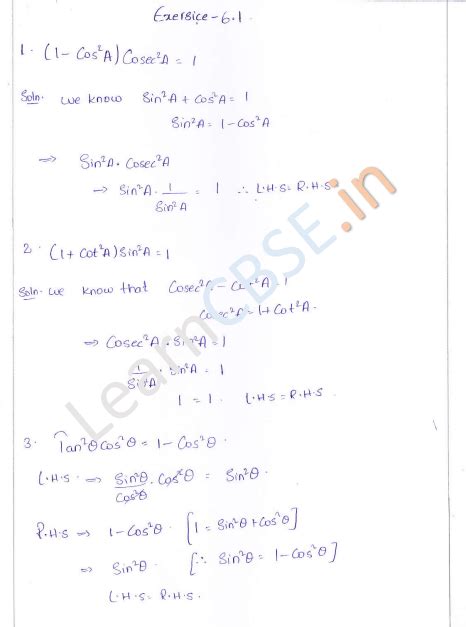 Exersice-6.1.
1. (1-Cos²A) Cosec²A = 1
Soln. We know Sin²A + Cos²A = 1
Sin²A = 1-Cos²A
⇒ Sin²A. Cosec²A
→ Sin²A. 1/Sin²A = 1 ∴ L.H.S = R.H.S
2. (1 + Cot²A) Sin²A = 1
Soln. We know that Cosec²A - Cot²A = 1
Cosec²A = 1 + Cot²A.
⇒ Cosec²A . Sin²A = 1
1/Sin²A . Sin²A = 1
1 = 1. L.H.S = R.H.S
3. Tan²θ Cos²θ = 1 - Cos²θ.
L.H.S ⇒ Sin²θ/Cos²θ . Cos²θ = Sin²θ.
R.H.S ⇒ 1-Cos²θ. [1 = Sin²θ + Cos²θ]
⇒ Sin²θ. [∴ Sin²θ = 1-Cos²θ]
L.H.S = R.H.S.
LearnCBSE.in